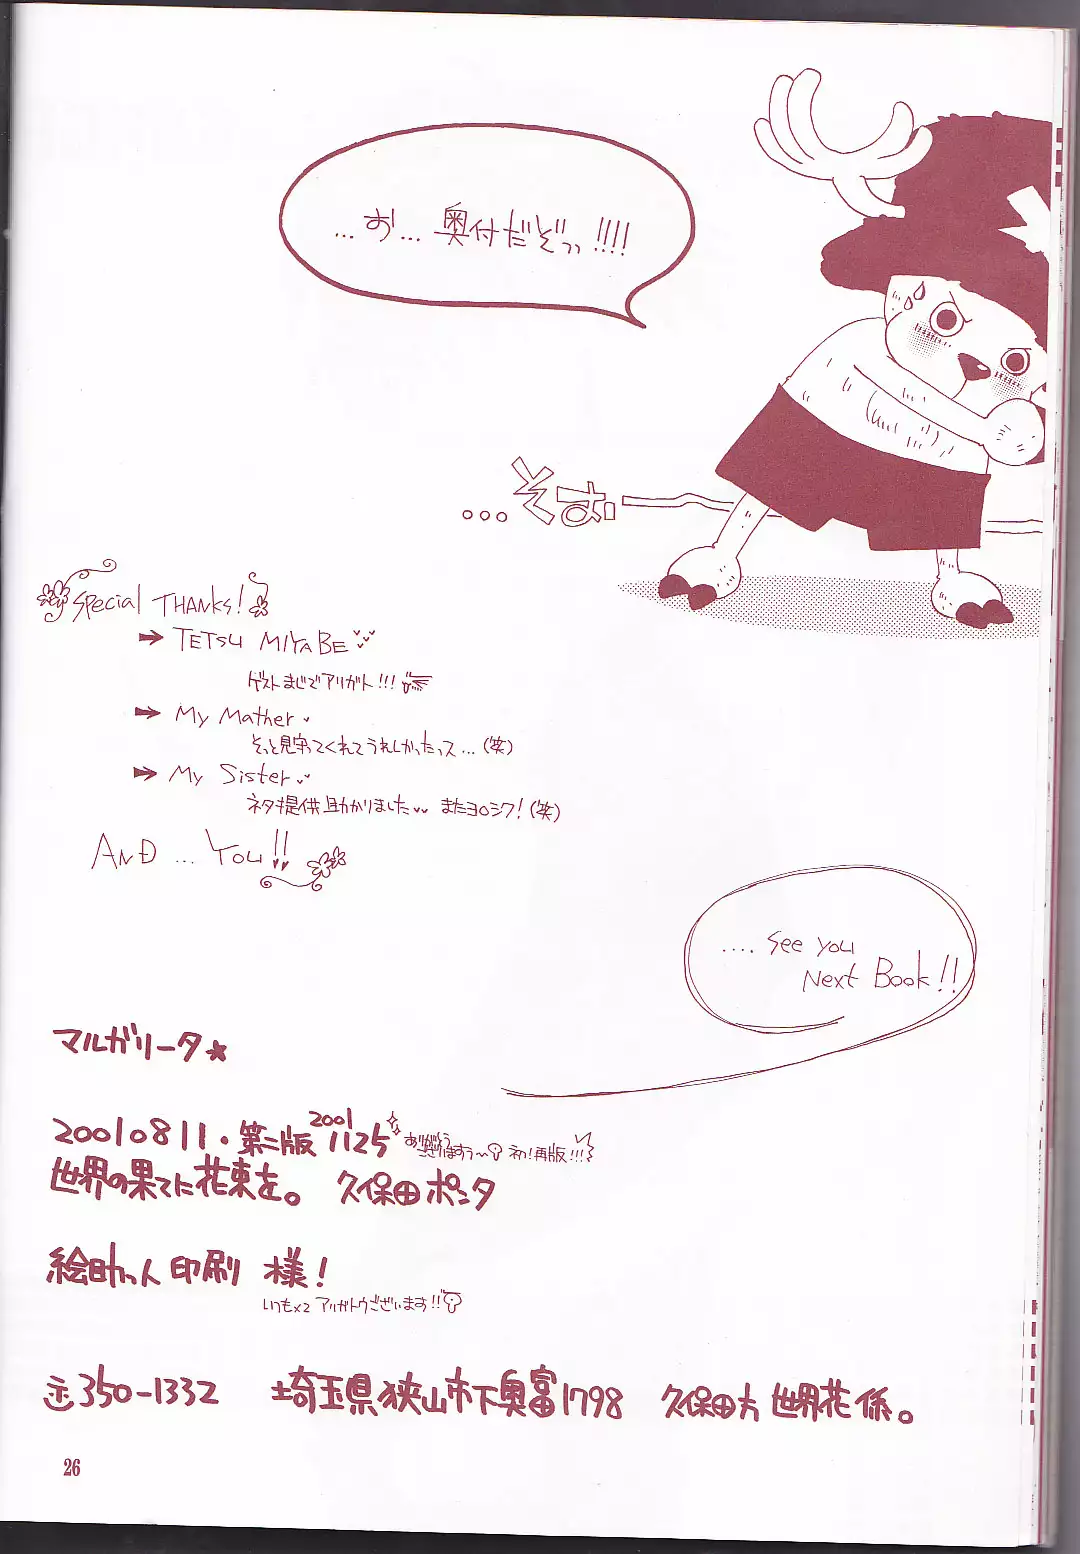 …お…奥付だぞッッ!!!!
…そば
Special THANKS!
➡ TETSU MIYABE
ゲストまじでアリガト!!!
➡ My Mather
そっと見守ってくれてうれしかったっス…(笑)
➡ My Sister
ネタ提供助かりました またヨロシク!(笑)
AND … YOU!!
.... See you
Next Book!!
マルガリータ★
20010811・第二版 2001 1125 ありがとうございますぅ〜 初!再版!!!
世界の果てに花束を。 久保田ポンタ
絵助っ人印刷 様!
いつも×2 アリガトウございます!!
〒350-1332 埼玉県狭山市下奥富1798 久保田方 世界花係。
26